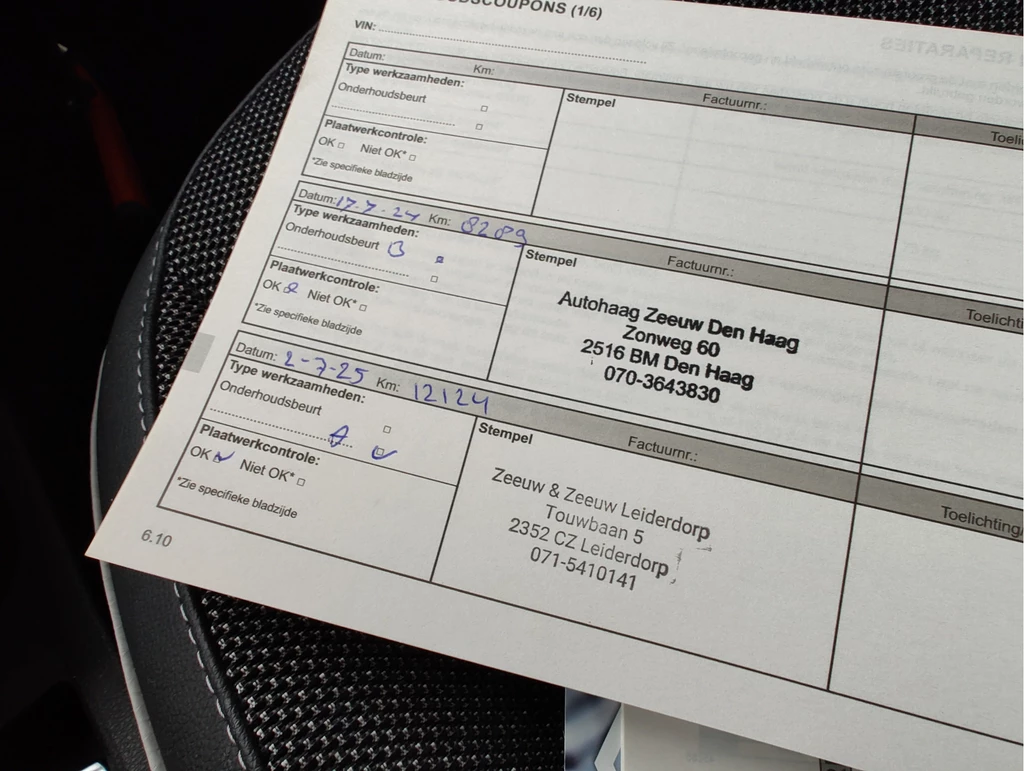 DSCOUPONS (1/6)
VIN:
Datum: Km: Factuurnr.: Toeli
Type werkzaamheden:
Onderhoudsbeurt
Plaatwerkcontrole:
OK Niet OK*
*Zie specifieke bladzijde
Stempel
Datum: 17-7-24 Km: 8289 Factuurnr.: Toelichtin
Type werkzaamheden:
Onderhoudsbeurt B
Plaatwerkcontrole:
OK Niet OK*
*Zie specifieke bladzijde
Stempel
Autohaag Zeeuw Den Haag
Zonweg 60
2516 BM Den Haag
070-3643830
Datum: 2-7-25 Km: 12124 Factuurnr.: Toelichting
Type werkzaamheden:
Onderhoudsbeurt
A
Plaatwerkcontrole:
OK Niet OK*
*Zie specifieke bladzijde
Stempel
Zeeuw & Zeeuw Leiderdorp
Touwbaan 5
2352 CZ Leiderdorp
071-5410141
6.10